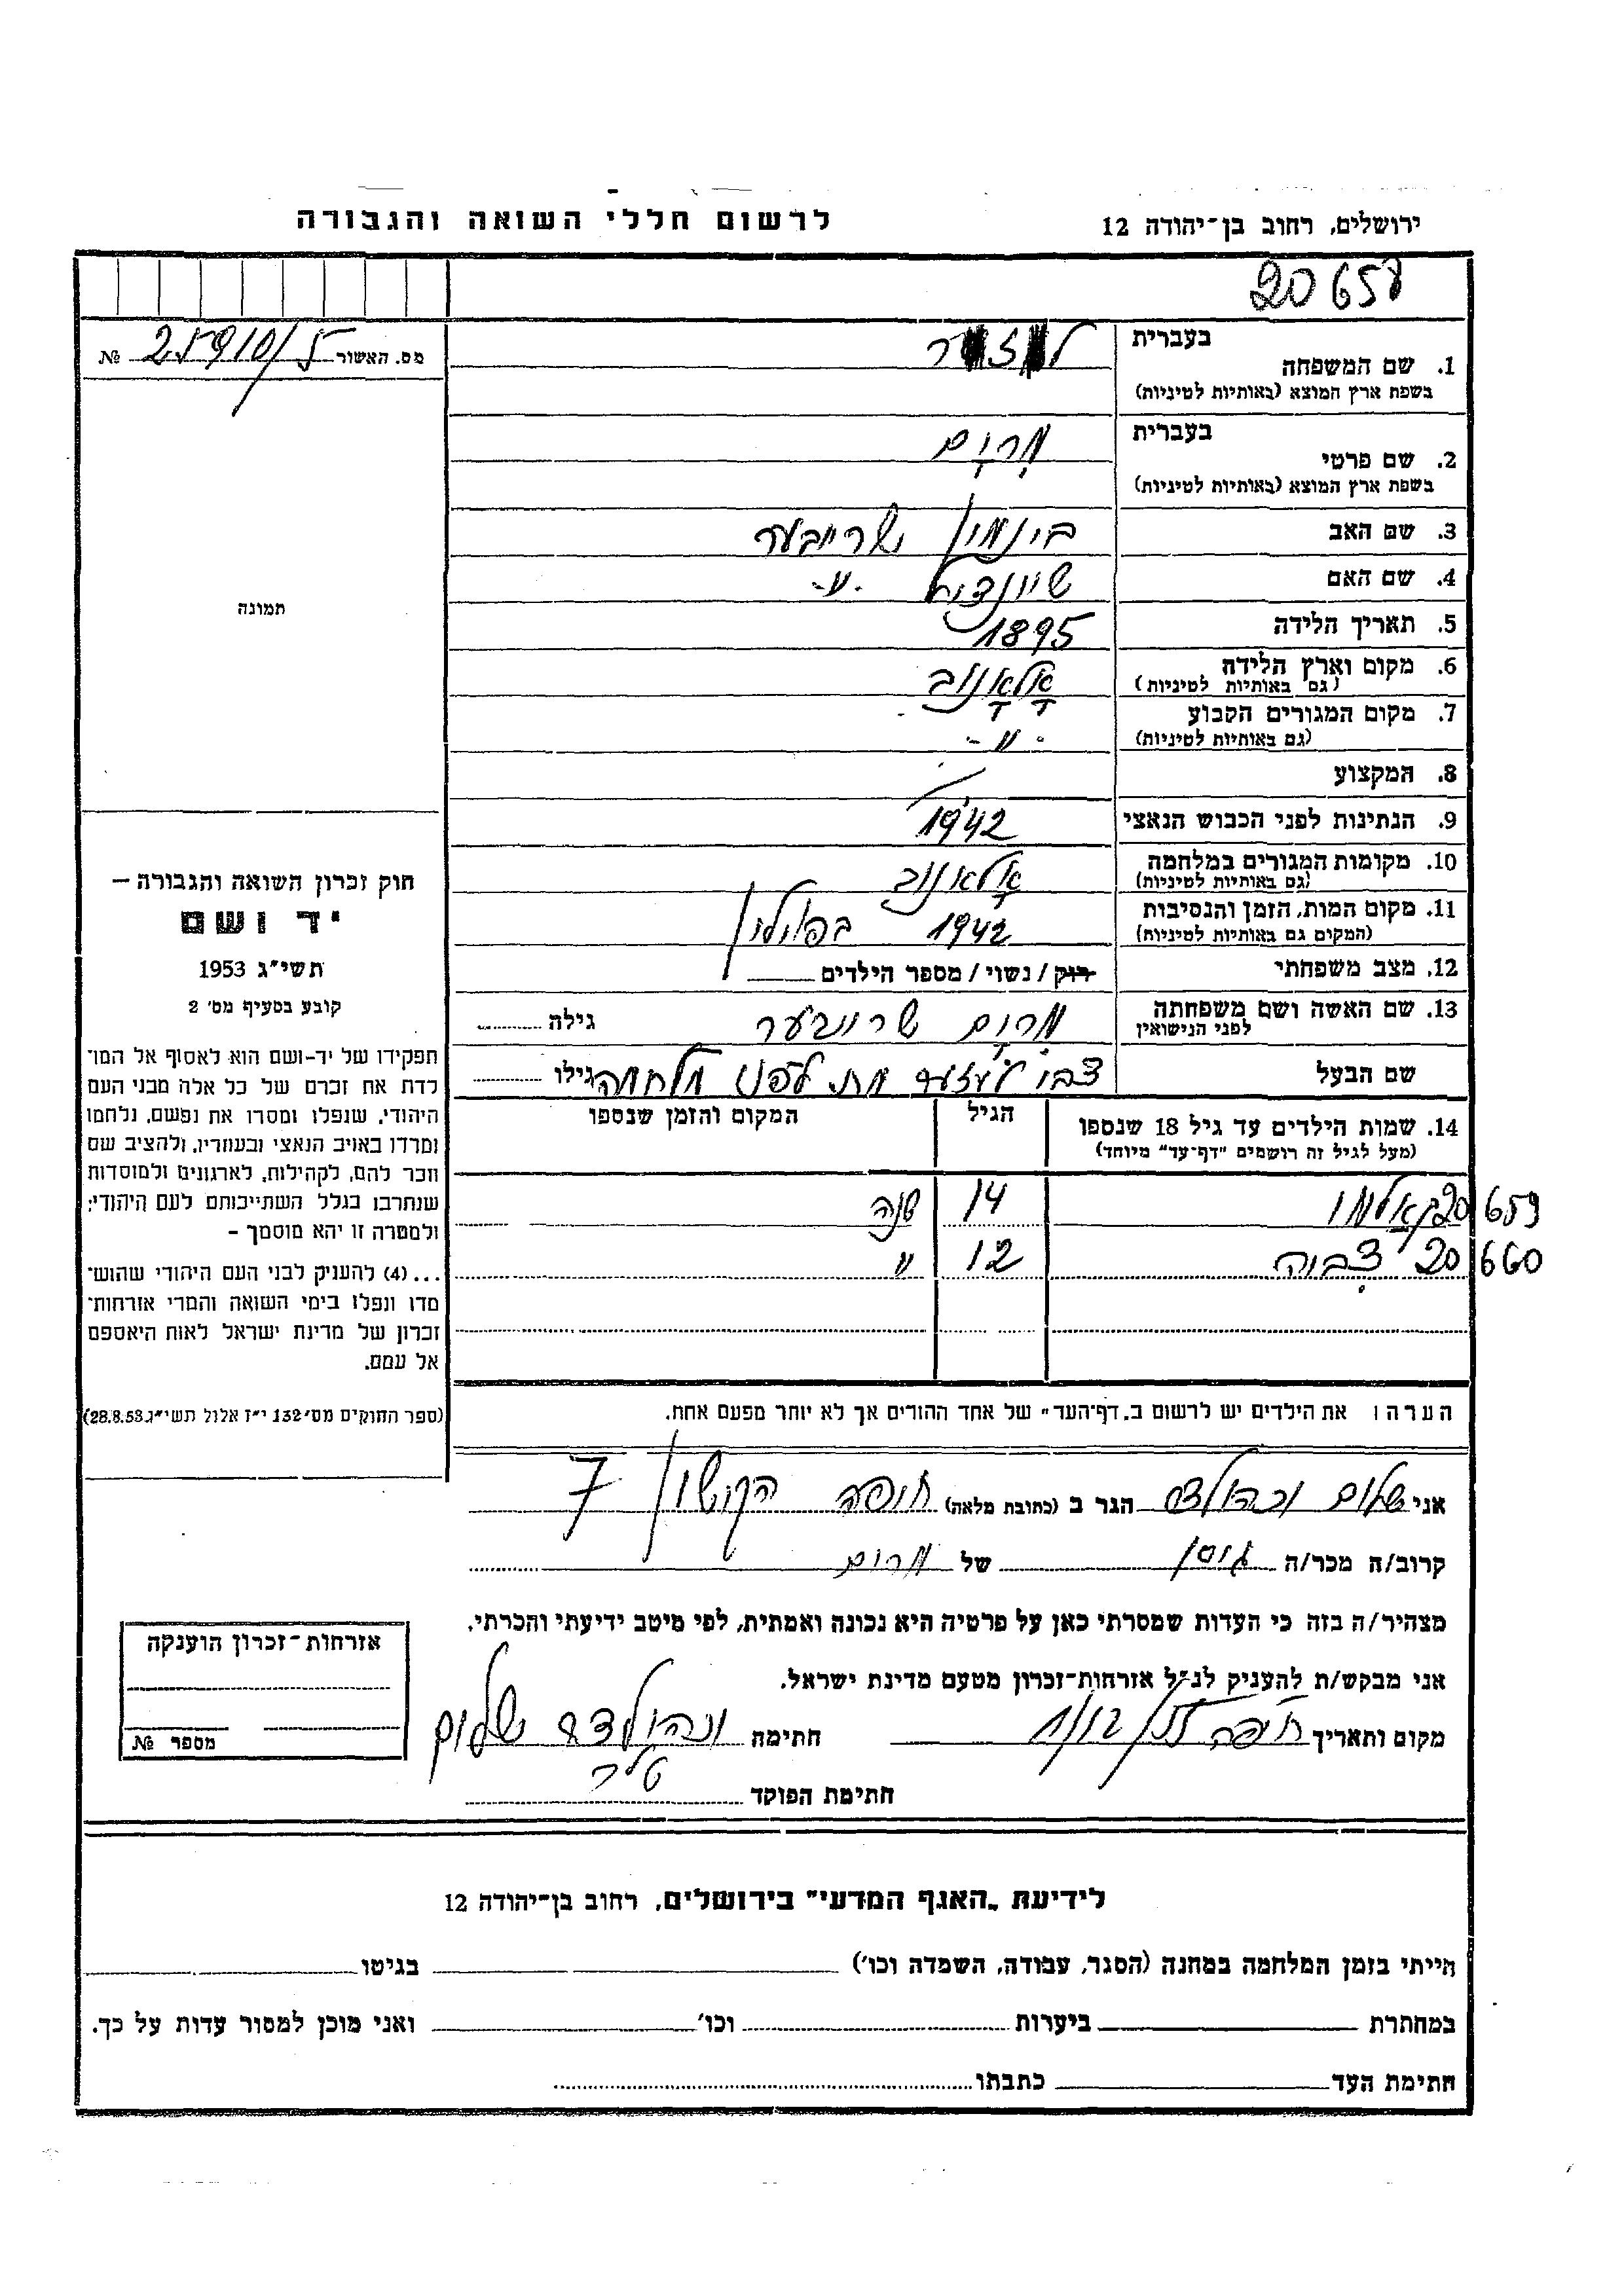 ירושלים, רחוב בן־יהודה 12
לרשום חללי השואה והגבורה
20658
מס. האשור №
בעברית
1. שם המשפחה
בשפת ארץ המוצא (באותיות לטיניות)
בעברית
2. שם פרטי מרים
בשפת ארץ המוצא (באותיות לטיניות)
3. שם האב בינמין שרייבער
4. שם האם שיינדיל -״-
5. תאריך הלידה 1895
6. מקום וארץ הלידה
(גם באותיות לטיניות)
7. מקום המגורים הקבוע -״-
(גם באותיות לטיניות)
8. המקצוע
9. הנתינות לפני הכבוש הנאצי 1942
10. מקומות המגורים במלחמה
(גם באותיות לטיניות)
11. מקום המות, הזמן והנסיבות 1942 בפולין
(המקום גם באותיות לטיניות)
12. מצב משפחתי רוק / נשוי / מספר הילדים
13. שם האשה ושם משפחתה מרים שרייבער גילה
לפני הנישואין
שם הבעל צבי מת לפני מלחמה גילו
14. שמות הילדים עד גיל 18 שנספו הגיל המקום והזמן שנספו
(מעל לגיל זה רושמים "דף־עד" מיוחד)
20659 14 שנה
20660 צביה 12 ״
הערה: את הילדים יש לרשום ב„דף־העד" של אחד ההורים אך לא יותר מפעם אחת.
תמונה
חוק זכרון השואה והגבורה —
יד ושם
תשי״ג 1953
קובע בסעיף מס׳ 2
תפקידו של יד-ושם הוא לאסוף אל המו־
לדת את זכרם של כל אלה מבני העם
היהודי, שנפלו ומסרו את נפשם, נלחמו
ומרדו באויב הנאצי ובעוזריו, ולהציב שם
וזכר להם, לקהילות, לארגונים ולמוסדות
שנחרבו בגלל השתייכותם לעם היהודי;
ולמטרה זו יהא מוסמך –
...(4) להעניק לבני העם היהודי שהוש־
מדו ונפלו בימי השואה והמרי אזרחות־
זכרון של מדינת ישראל לאות היאספם
אל עמם.
(ספר החוקים מס׳ 132 י״ז אלול תשי״ג 28.8.53)
אני שלום הגר ב (כתובת מלאה) חיפה הקישון 7
קרוב/ה מכר/ה גיסן של מרים
מצהיר/ה בזה כי העדות שמסרתי כאן על פרטיה היא נכונה ואמתית, לפי מיטב ידיעתי והכרתי.
אני מבקש/ת להעניק לנ״ל אזרחות־זכרון מטעם מדינת ישראל.
מקום ותאריך חיפה חתימה שלום
חתימת הפוקד
אזרחות־זכרון הוענקה
מספר №
לידיעת „האגף המדעי" בירושלים, רחוב בן־יהודה 12
הייתי בזמן המלחמה במחנה (הסגר, עבודה, השמדה וכו׳) בגיטו
במחתרת ביערות וכו׳ ואני מוכן למסור עדות על כך.
חתימת העד כתבתו